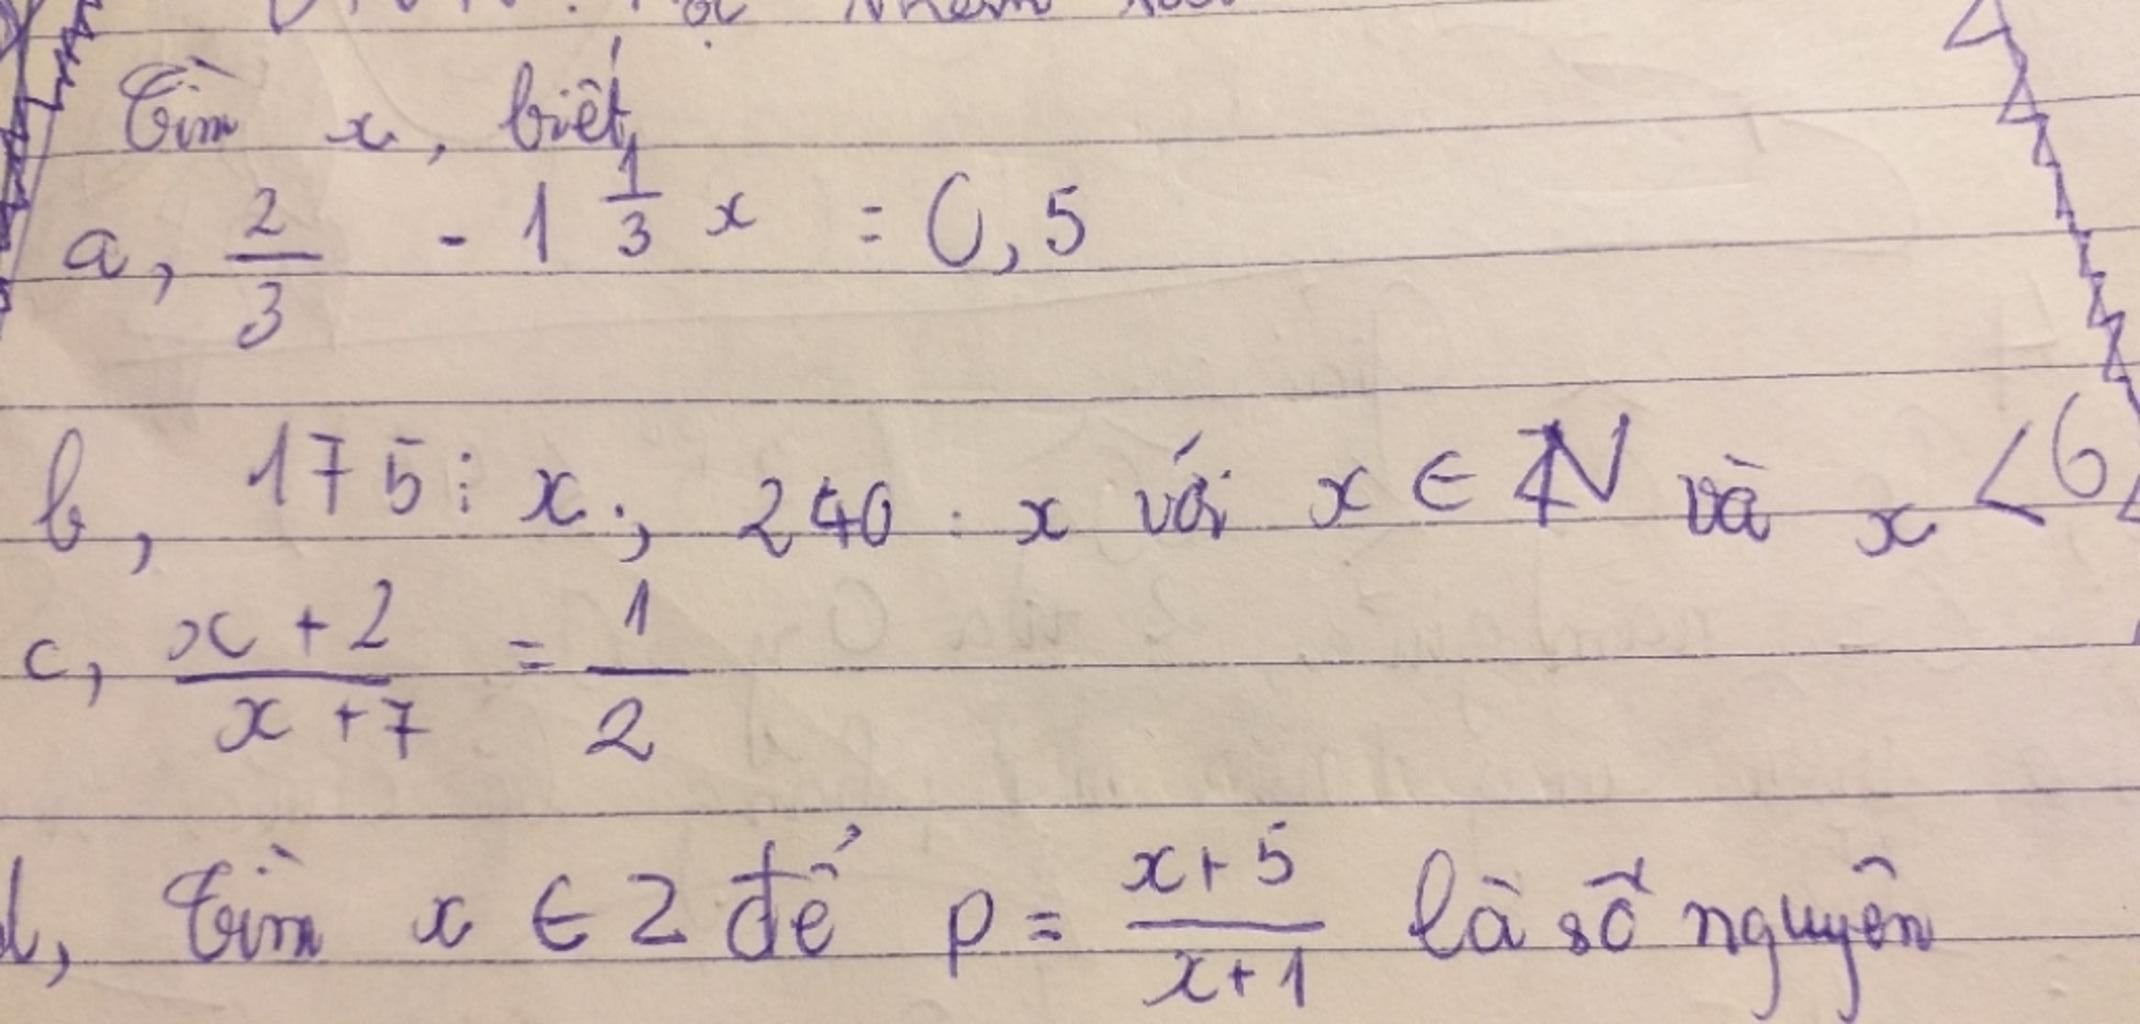 Tìm x, biết
a, 2/3 - 1 1/3 x = 0,5
b, 175 ⋮ x ; 240 : x với x ∈ N và x < 6
c, x + 2 / x + 7 = 1/2
d, Tìm x ∈ Z để p = x + 5 / x + 1 là số nguyên